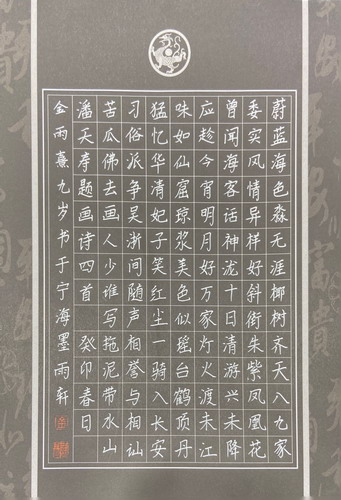 蔚蓝海色淼无涯椰树齐天八九家
委实风情异样好斜街朱紫凤凰花
曾闻海客话神泷十日清游兴未降
应趁今宵明月好万家灯火渡未江
味如仙窟琼浆美色似瑶台鹤顶丹
猛忆华清妃子笑红尘一骑入长安
习俗派争吴浙间随声相誉与相讪
苦瓜佛去画人少谁写拖泥带水山
潘天寿题画诗四首 癸卯春日
金雨熹九岁书于宁海墨雨轩